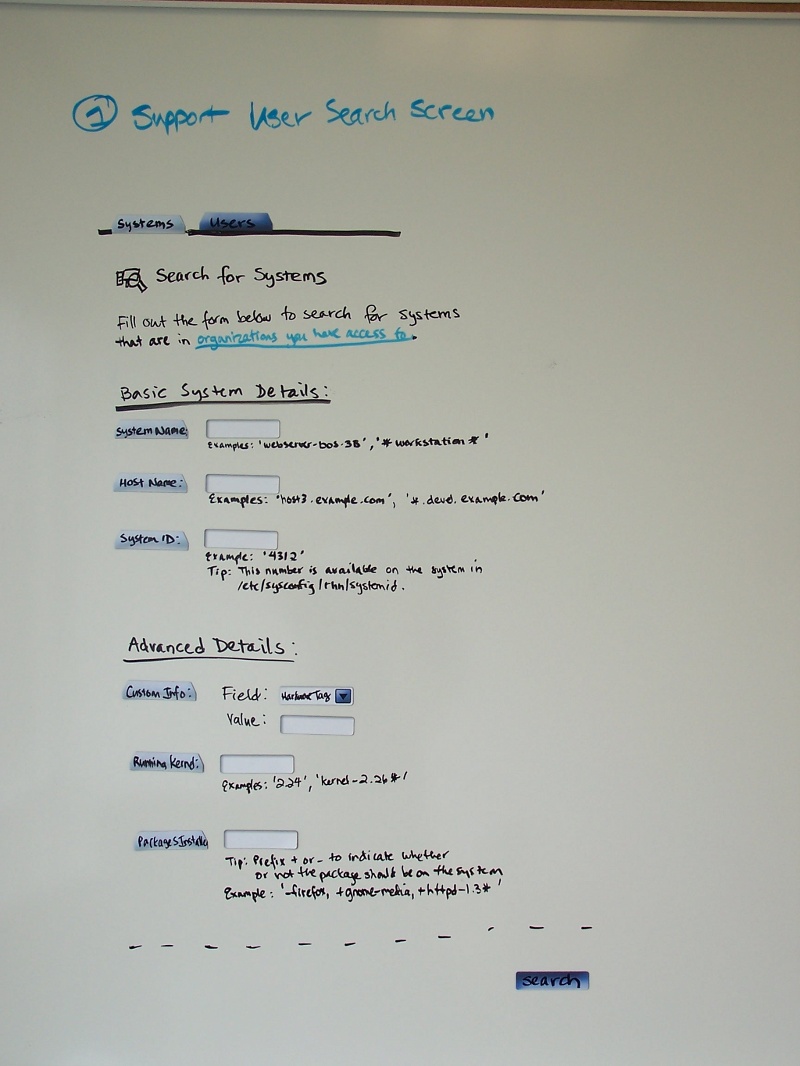 1 Support User Search Screen
Systems Users
Search for Systems
Fill out the form below to search for systems
that are in organizations you have access to.
Basic System Details:
System Name:
Examples: 'webserver-bos-3B', '*workstation*'
Host Name:
Examples: 'host3.example.com', '*.devel.example.com'
System ID:
Example: '4312'
Tip: This number is available on the system in
/etc/sysconfig/rhn/systemid.
Advanced Details:
Custom Info: Field: Hardware Tag
Value:
Running Kernel:
Examples: '2.24', 'kernel-2.26*'
Packages Installed
Tip: Prefix + or - to indicate whether
or not the package should be on the system
Example: '-firefox, +gnome-media, +httpd-1.3*'
search